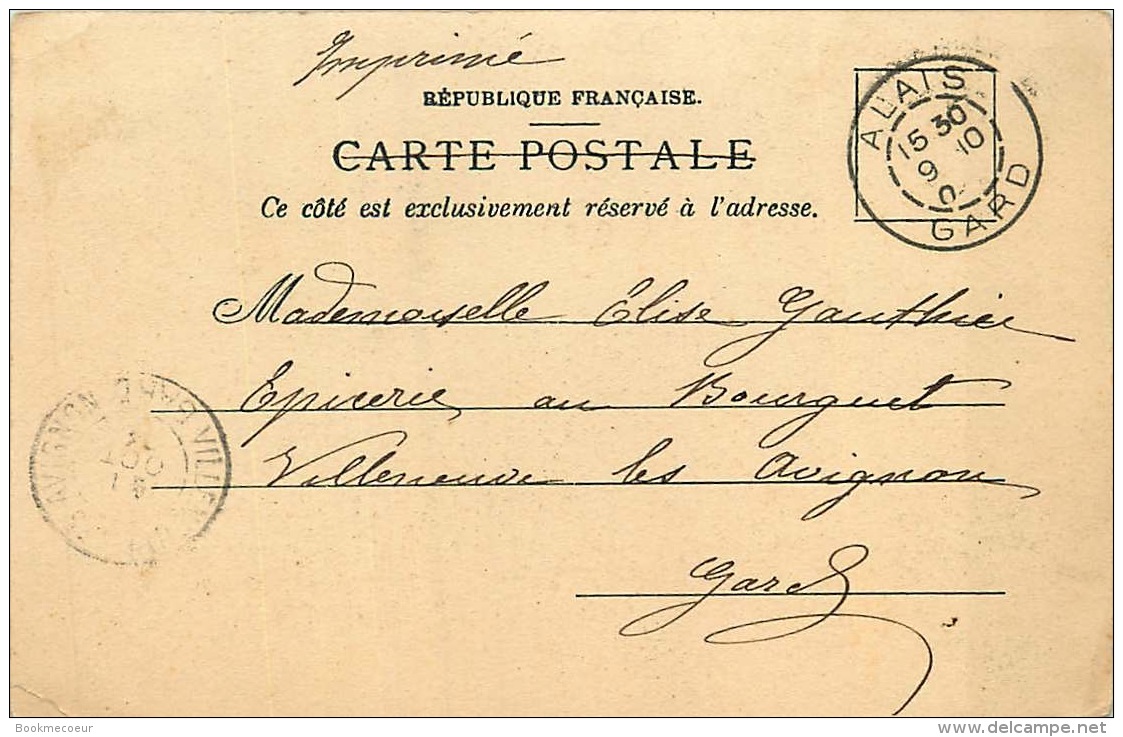 Imprimé
RÉPUBLIQUE FRANÇAISE.
CARTE POSTALE
Ce côté est exclusivement réservé à l'adresse.
ALAIS
15 30
9 10
GARD
Mademoiselle Élise Gauthier
Epicerie au Bourguet
Villeneuve les Avignon
Gard
AVIGNON GARD
OCT
Bookmecoeur
www.delcampe.net